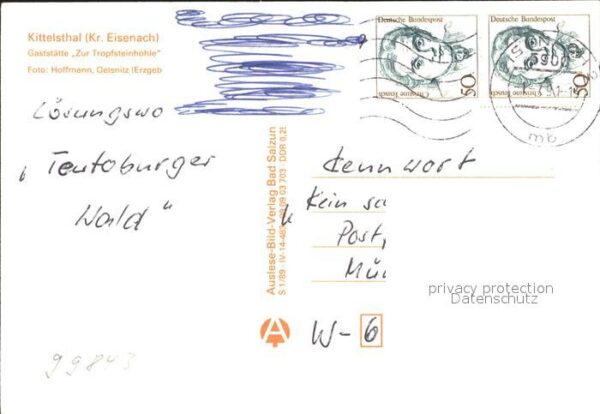 Kittelsthal (Kr. Eisenach)
Gaststätte „Zur Tropfsteinhöhle"
Foto: Hoffmann, Oelsnitz (Erzgeb
Lösungswo
„Teutoburger
Wald"
99843
Auslese-Bild-Verlag Bad Salzun
S 1/89 · IV-14-483 09 03 703 DDR 0,25
Deutsche Bundespost
Christine Teusch
50
Deutsche Bundespost
Christine Teusch
50
Kennwort
Kein sa
Post,
Mü
W-6
privacy protection
Datenschutz